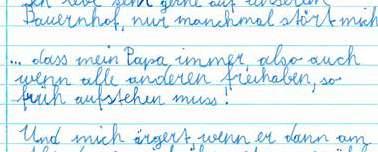 Ich lebe sehr gerne auf unserem
Bauernhof, nur manchmal stört mich
... dass mein Papa immer, also auch
wenn alle anderen freihaben, so
früh aufstehen muss!
Und mich ärgert, wenn er dann am